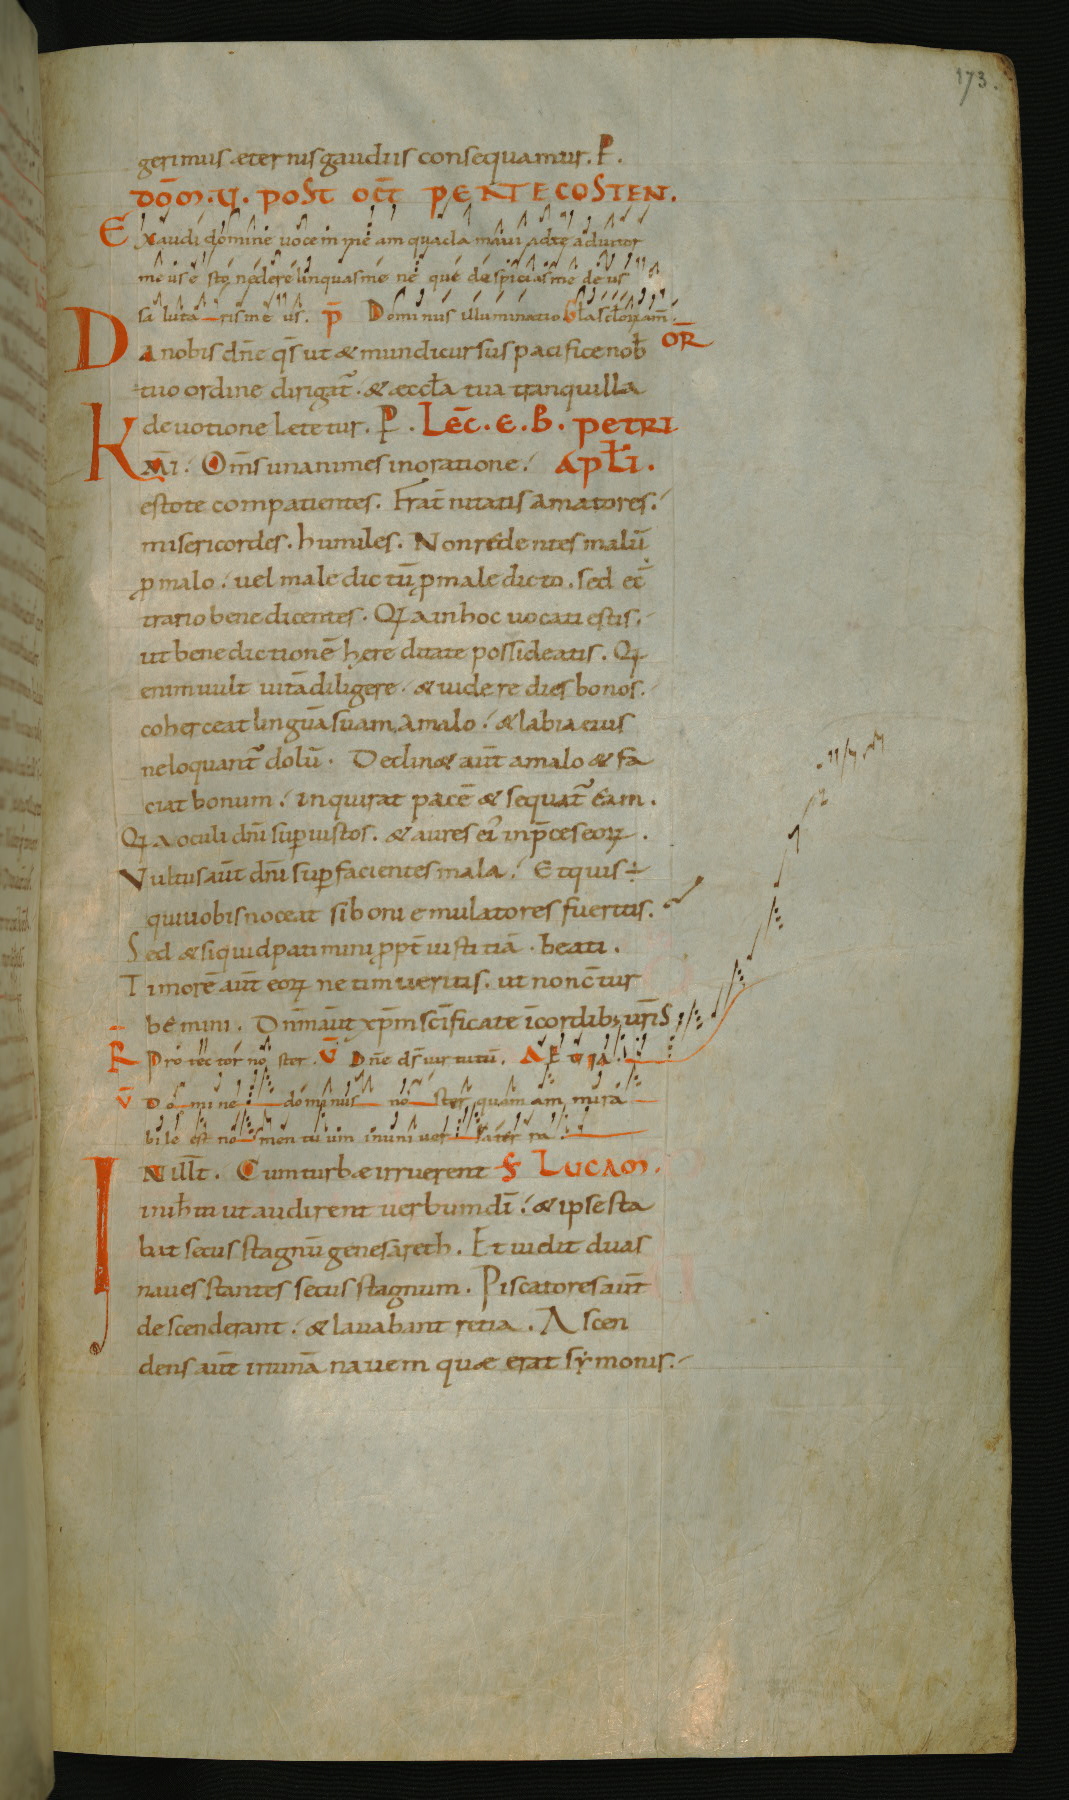 173.
gerimus æternis gaudiis consequamur. P.
DOM̄. VI. POST OCT̄ PENTECOSTEN.
Exaudi domine uocem meam qua clamaui ad te adiutor
meus esto ne derelinquas me neque despicias me deus
salutaris meus. p̄ Dominus illuminatio
OR̄
Da nobis dn̄e qs̄ ut & mundi cursus pacifice nob̄
tuo ordine dirigat᷑. & æccl̄a tua tranquilla
deuotione letetur. P. LEC̄. E. B. PETRI
APL̄I.
K̄MI. Om̄s unanimes in oratione.
estote compatientes. Frat̄nitatis amatores.
misericordes. humiles. Non reddentes malū
p malo. uel maledictū p maledicto. sed ec̄
trario benedicentes. Qa in hoc uocati estis.
ut benedictionē hereditate possideatis. Q
enim uult uitā diligere. & uidere dies bonos.
coherceat linguā suam a malo. & labia eius
ne loquant᷑ dolū. Declin& aūt a malo & fa
ciat bonum. inquirat pacē & sequat᷑ eam.
Qa oculi dn̄i sup iustos. & aures ei' in p̄ces eoꝝ.
Vultus aūt dn̄i sup facientes mala. Et quis ÷
qui uobis noceat si boni emulatores fueritis.
Sed & si quid patimini ppt̄ iustitiā. beati.
Timorē aūt eoꝝ ne timueritis. ut non c̄tur
bemini. Dn̄m aūt xp̄m sc̄ificate ī cordib; ur̄is
R̄ Protector noster. V̄ Dn̄e ds̄ uirtutū. AEUIA.
V̄ Domine dominus noster quam am mira
bile est nomen tuum in uniuersa terra.
IN ill̄t. Cum turbæ irruerent S̄ LUCAM.
in ih̄m ut audirent uerbum dī. & ipse sta
bat secus stagnū genesareth. Et uidit duas
naues stantes secus stagnum. Piscatores aūt
descenderant. & lauabant retia. Ascen
dens aūt in unā nauem quæ erat symonis.